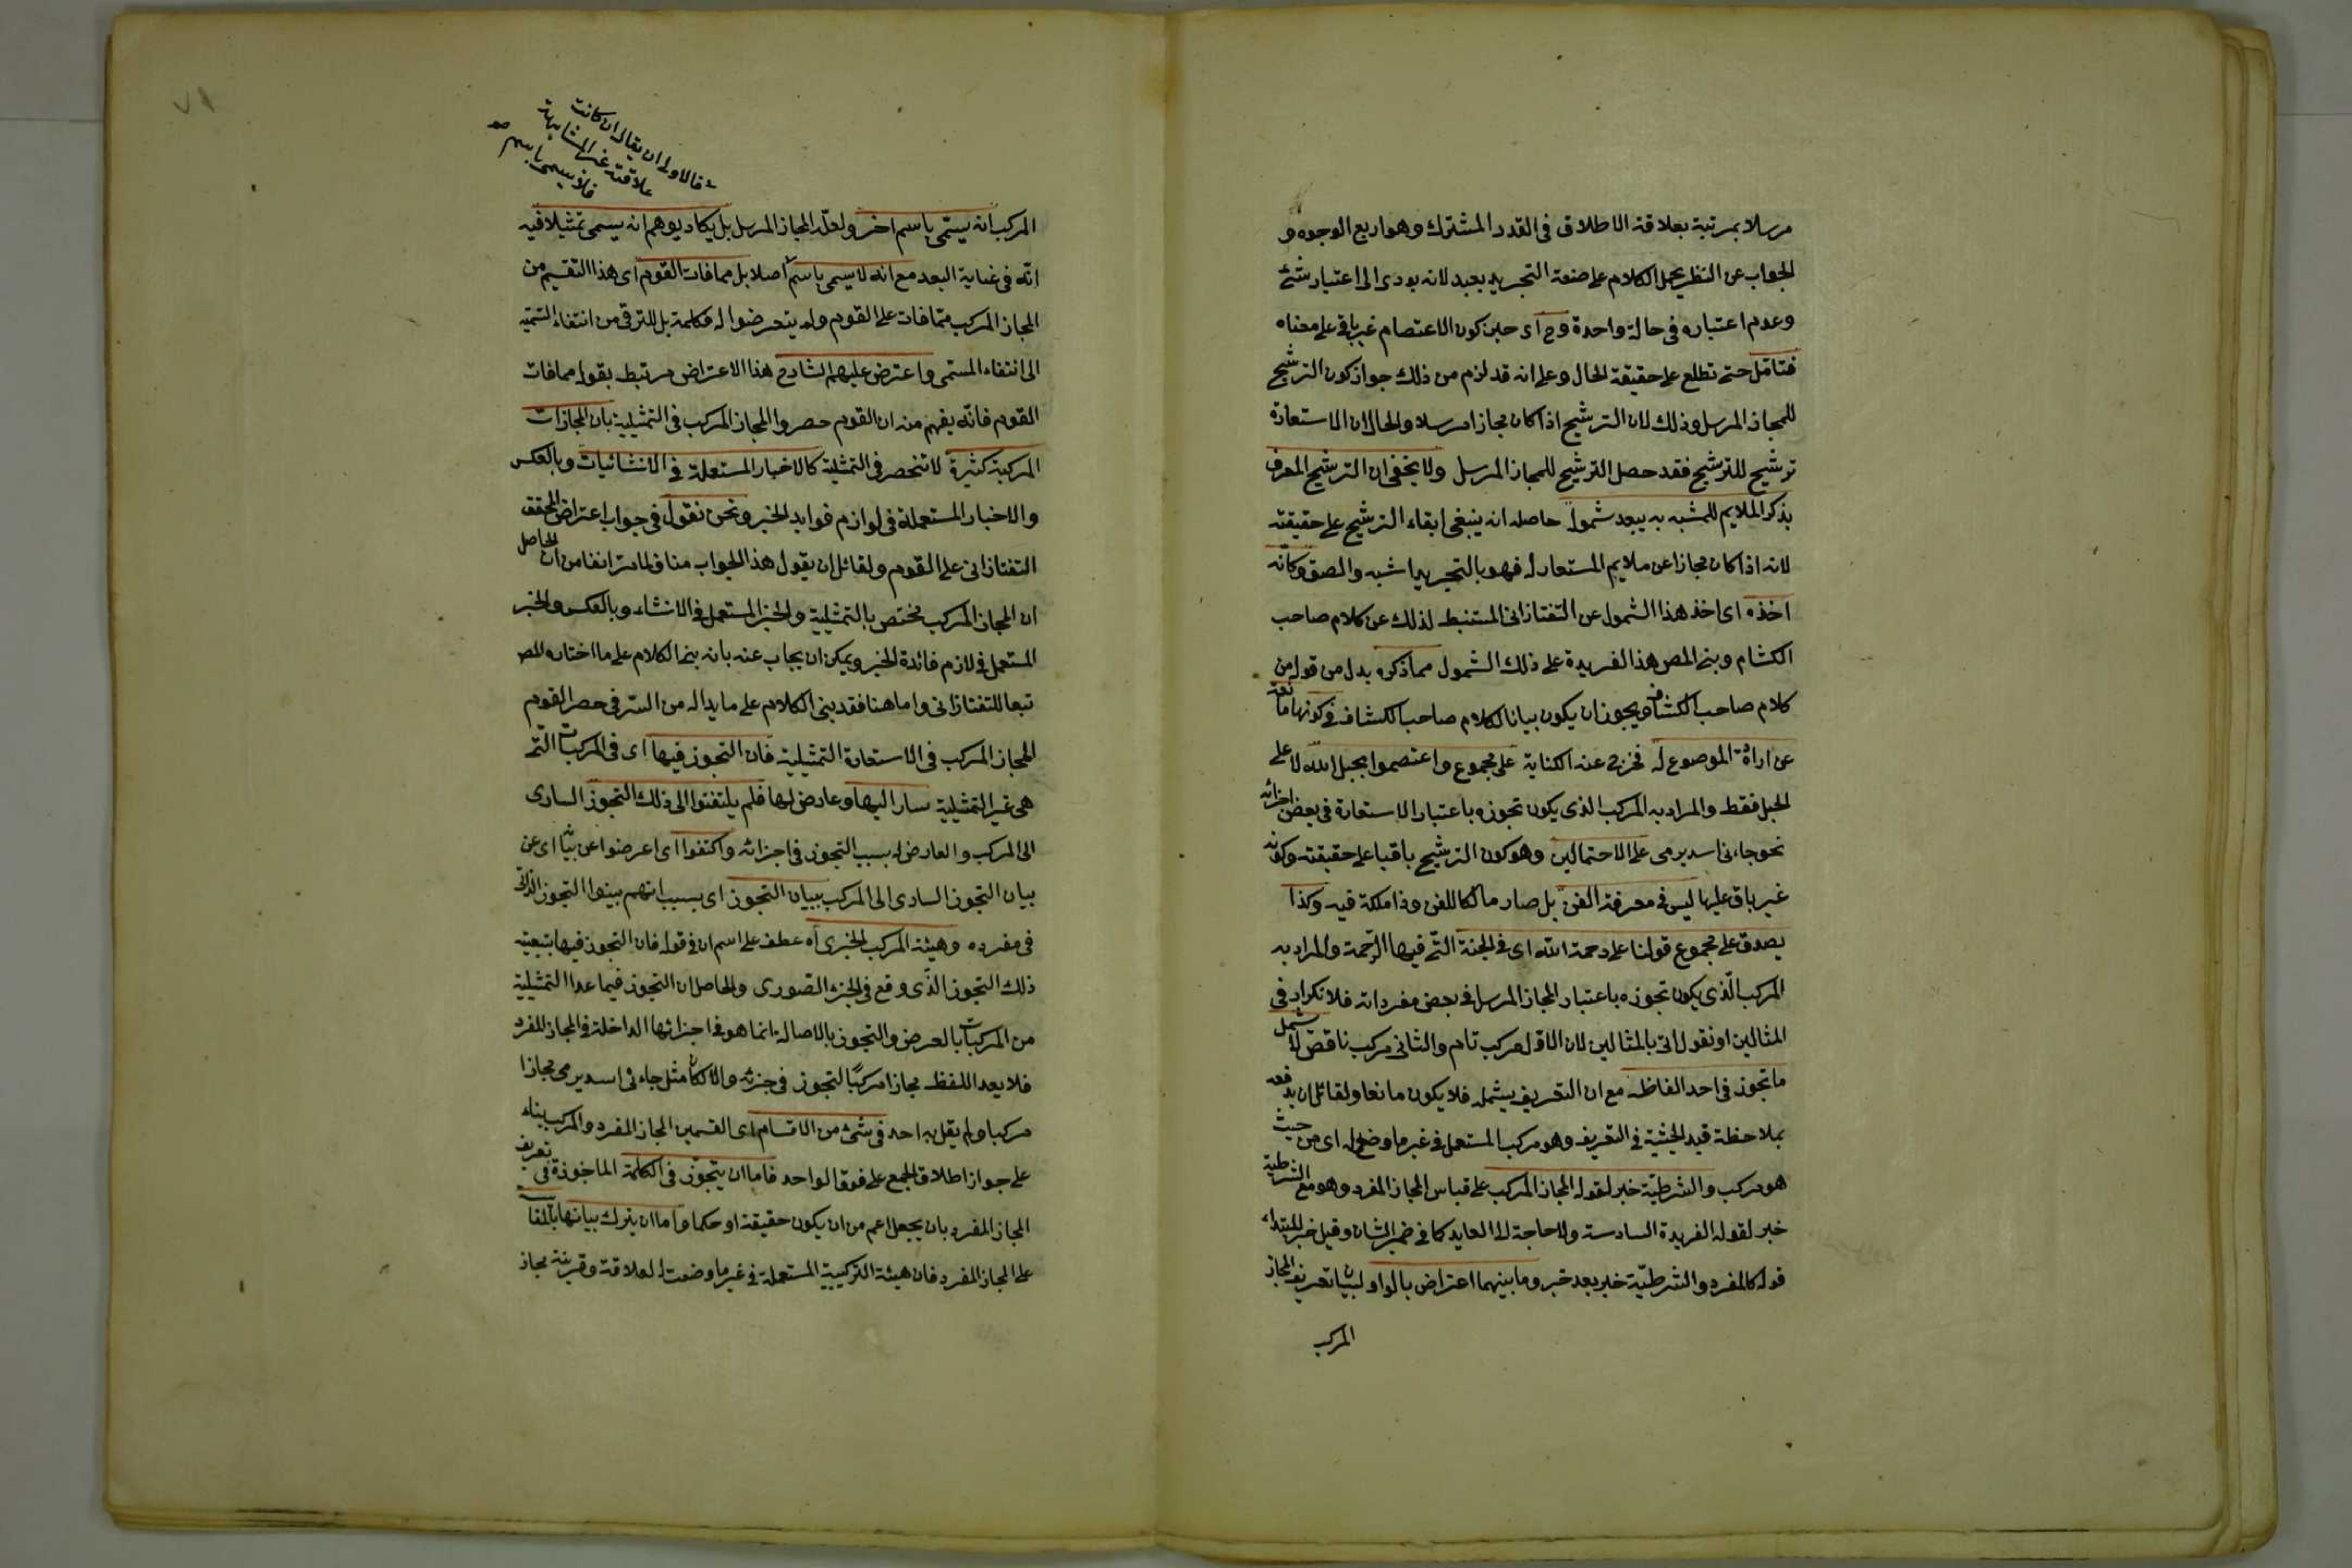 مرسلا بمرتبة بعلاقة الاطلاق فى القدر المشترك وهو اربع الوجوه و
الجواب عن النظر بحمل الكلام على صنعة التجريد بعيد لانه يودى الى اعتبار شئ
وعدم اعتباره فى حالة واحدة وح اى حين كون الاعتصام غير باق على معناه
فتامل حتى تطلع على حقيقة الحال وعلى انه قد لزم من ذلك جواز كون الترشيح
للمجاز المرسل وذلك لان الترشيح اذا كان مجازا مرسلا والحال ان الاستعارة
ترشيح للترشيح فقد حصل الترشيح للمجاز المرسل ولا يخفى ان الترشيح المعرف
بذكر الملايم للمشبه به يبعد شموله حاصله انه ينبغى ابقاء الترشيح على حقيقته
لانه اذا كان مجازا عن ملايم المستعار له فهو بالتجريد اشبه والصق وكانه
اخذه اى اخذ هذا الشمول عن التفتازانى المستنبط لذلك عن كلام صاحب
الكشاف وبنى المص هذا الفريدة على ذلك الشمول مما ذكره بدل من قوله من
كلام صاحب الكشاف ويجوز ان يكون بيانا لكلام صاحب الكشاف فى كونها مانعة
عن ارادة الموضوع له فخرج عنه الكناية على مجموع واعتصموا بحبل الله لا على
الحبل فقط والمراد به المركب الذى يكون تجوزه باعتبار الاستعارة فى بعض اجزائه
نحو جاءنى اسد يرمى على الاحتمالين وهو كون الترشيح باقيا على حقيقته وكونه
غير باق عليها ليس فى معرفة الفن بل صار مالكا للفن وذا ملكة فيه وكذا
يصدق على مجموع قولنا على رحمة الله اى فى الجنة التى فيها الرحمة والمراد به
المركب الذى يكون تجوزه باعتبار المجاز المرسل فى بعض مفرداته فلا تكرار فى
المثالين او نقول اتى بالمثالين لان الاول مركب تام والثانى مركب ناقص لا يشمل
ما تجوز فى احد الفاظه مع ان التعريف يشمله فلا يكون مانعا ولقائل ان يدفعه
بملاحظة قيد الحيثية فى التعريف وهو مركب المستعمل فى غير ما وضع له اى من حيث
هو مركب والشرطية خبر لقوله المجاز المركب على قياس المجاز المفرد وهو مع الشرطية
خبر لقوله الفريدة السادسة ولا حاجة الى العايد كما فى ضمير الشان وقيل خبر المبتداء
قوله كالمفرد والشرطية خبر بعد خبر وما بينهما اعتراض بالواو لبيان تعريف المجاز
المركب
فالاولى ان يقال ان كانت
علاقته غير المشابهة
فلا يسمى باسم صح
المركب انه يسمى باسم اخر ولعله المجاز المرسل بل يكاد يوهم انه يسمى تمثيلا فيه
انه فى غناية البعد مع انه لا يسمى باسم اصلا بل مما فات القوم اى هذا التقسيم من
المجاز المركب مما فات على القوم ولم يتعرضوا له فكلمة بل للترقى من انتفاء التسمية
الى انتفاء المسمى واعترض عليهم الشارح هذا الاعتراض مرتبط بقوله مما فات
القوم فانه يفهم منه ان القوم حصروا المجاز المركب فى التمثيلية بان المجازات
المركبة كثيرة لا تنحصر فى التمثيلية كالاخبار المستعملة فى الانشائيات وبالعكس
والاخبار المستعملة فى لوازم فوايد الخبر ونحن نقول فى جواب اعتراض المحقق
التفتازانى على القوم ولقائل ان يقول هذا الجواب مناف لما مر انفا من ان الحاصل
ان المجاز المركب مختص بالتمثيلية والخبر المستعمل فى الانشاء وبالعكس والخبر
المستعمل فى لازم فائدة الخبر ويمكن ان يجاب عنه بانه بنى الكلام على ما اختاره المص
تبعا للتفتازانى واما هنا فقد بنى الكلام على ما بدا له من السر فى حصر القوم
المجاز المركب فى الاستعارة التمثيلية فان التجوز فيها اى فى المركبات التى
هى غير التمثيلية سار اليها وعارض لها فلم يلتفتوا الى ذلك التجوز السارى
الى المركب والعارض له بسبب التجوز فى اجزائه واكتفوا اى اعرضوا عن بيانه اى عن
بيان التجوز السارى الى المركب ببيان التجوز اى بسبب انهم بينوا التجوز الذى
فى مفرده وهيئة المركب الخبرى اه عطف على اسم ان فى قوله فان التجوز فيها بتبعية
ذلك التجوز الذى وقع فى الجزء الصورى والحاصل ان التجوز فيما عدا التمثيلية
من المركبات بالعرض والتجوز بالاصالة انما هو فى اجزائها الداخلة فى المجاز المفرد
فلا يعد اللفظ مجازا مركبا لتجوز فى جزئه والا لكان مثل جاءنى اسد يرمى مجازا
مركبا ولم يقل به احد فى شئ من الاقسام اى القسمين المجاز المفرد والمركب بناء
على جواز اطلاق الجمع على فوق الواحد فاما ان يتجوز فى الكلمة الماخوذة فى تعريف
المجاز المفرد بان يجعل اعم من ان يكون حقيقة او حكما واما ان يترك بيانها بالمقايسة
على المجاز المفرد فان هيئة التركيبية المستعملة فى غير ما وضعت له لعلاقة وقرينة مجاز